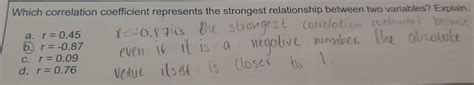 Which correlation coefficient represents the strongest relationship between two variables? Explain.
a. r = 0.45 r = -0.87 is the strongest correlation coefficient because
b. r = -0.87 even if it is a negative number, the absolute
c. r = 0.09 value itself is closer to 1.
d. r = 0.76